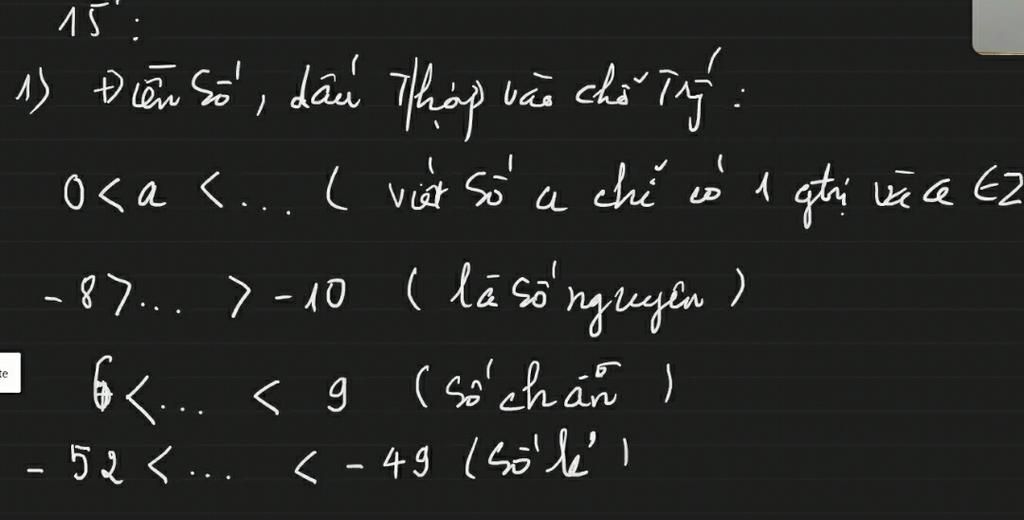 15':
1) Điền số, dấu Thhợp vào chỗ Trố́ng :
0 < a < ... ( viết số a chỉ có 1 gtrị và a ∈ Z
- 8 > ... > - 10 ( là số nguyên )
6 < ... < 9 ( số chẵn )
- 52 < ... < - 49 ( số lẻ )
te